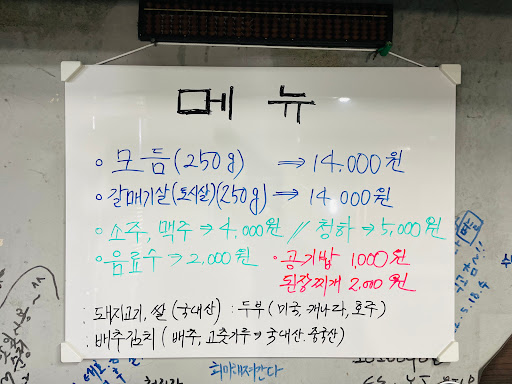 메 뉴
◦ 모듬(250g) ⇒ 14.000원
◦ 갈매기살(토시살)(250g) ⇒ 14,000원
◦ 소주, 맥주 ⇒ 4,000원 // 청하 ⇒ 5,000원
◦ 음료수 ⇒ 2,000원
◦ 공기밥 1,000원
된장찌개 2,000원
: 돼지고기, 쌀 (국내산) : 두부 (미국, 캐나다, 호주)
: 배추김치 (배추, 고춧가루⇒국내산.중국산)